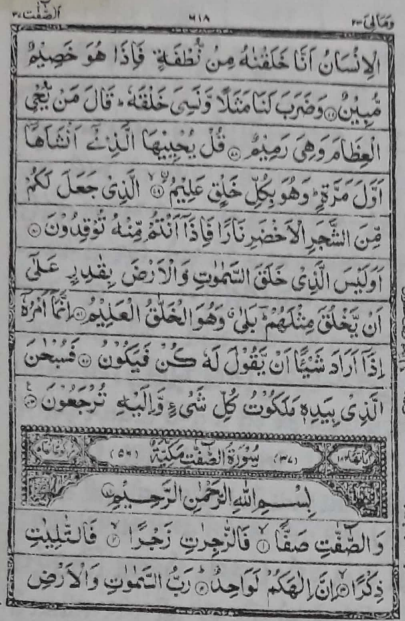 الصّٰفّٰت ٣٧ ٦١٨ ومالی ٢٣
الْاِنْسَانُ اَنَّا خَلَقْنٰهُ مِنْ نُّطْفَةٍ فَاِذَا هُوَ خَصِيْمٌ
مُّبِيْنٌ ۝ وَضَرَبَ لَنَا مَثَلًا وَّنَسِيَ خَلْقَهٗ ؕ قَالَ مَنْ يُّحْيِ
الْعِظَامَ وَهِيَ رَمِيْمٌ ۝ قُلْ يُحْيِيْهَا الَّذِيْۤ اَنْشَاَهَاۤ
اَوَّلَ مَرَّةٍ ؕ وَهُوَ بِكُلِّ خَلْقٍ عَلِيْمُ ۝ الَّذِيْ جَعَلَ لَكُمْ
مِّنَ الشَّجَرِ الْاَخْضَرِ نَارًا فَاِذَاۤ اَنْتُمْ مِّنْهُ تُوْقِدُوْنَ ۝
اَوَلَيْسَ الَّذِيْ خَلَقَ السَّمٰوٰتِ وَالْاَرْضَ بِقٰدِرٍ عَلٰۤى
اَنْ يَّخْلُقَ مِثْلَهُمْ ؕ بَلٰى ۗ وَهُوَ الْخَلّٰقُ الْعَلِيْمُ ۝ اِنَّمَاۤ اَمْرُهٗۤ
اِذَاۤ اَرَادَ شَيْـًٔا اَنْ يَّقُوْلَ لَهٗ كُنْ فَيَكُوْنُ ۝ فَسُبْحٰنَ
الَّذِيْ بِيَدِهٖ مَلَكُوْتُ كُلِّ شَيْءٍ وَّاِلَيْهِ تُرْجَعُوْنَ ۝
(٣٧) سُوْرَةُ الصّٰفّٰتِ مَكِّيَّةٌ (٥٦)
بِسْمِ اللّٰهِ الرَّحْمٰنِ الرَّحِيْمِ
وَالصّٰٓفّٰتِ صَفًّا ۝ فَالزّٰجِرٰتِ زَجْرًا ۝ فَالتّٰلِيٰتِ
ذِكْرًا ۝ اِنَّ اِلٰهَكُمْ لَوَاحِدٌ ۝ رَبُّ السَّمٰوٰتِ وَالْاَرْضِ